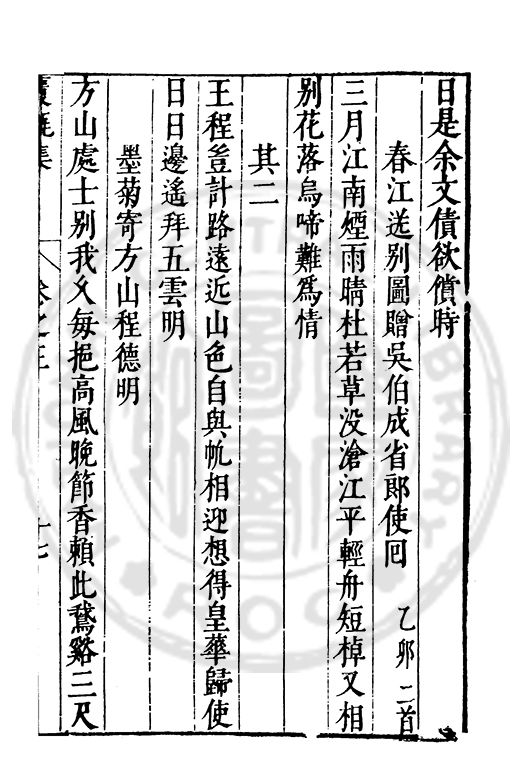 日是余文債欲償時
春江送别圖贈吳伯成省郎使囘 乙卯 二首
三月江南煙雨晴杜若草没滄江平輕舟短棹又相
别花落烏啼難爲情
其二
王程豈計路遠近山色自與帆相迎想得皇華歸使
日日邊遙拜五雲明
墨菊寄方山程德明
方山處士别我乆每挹高風晚節香賴此鵞谿三尺
集 卷之三 十七